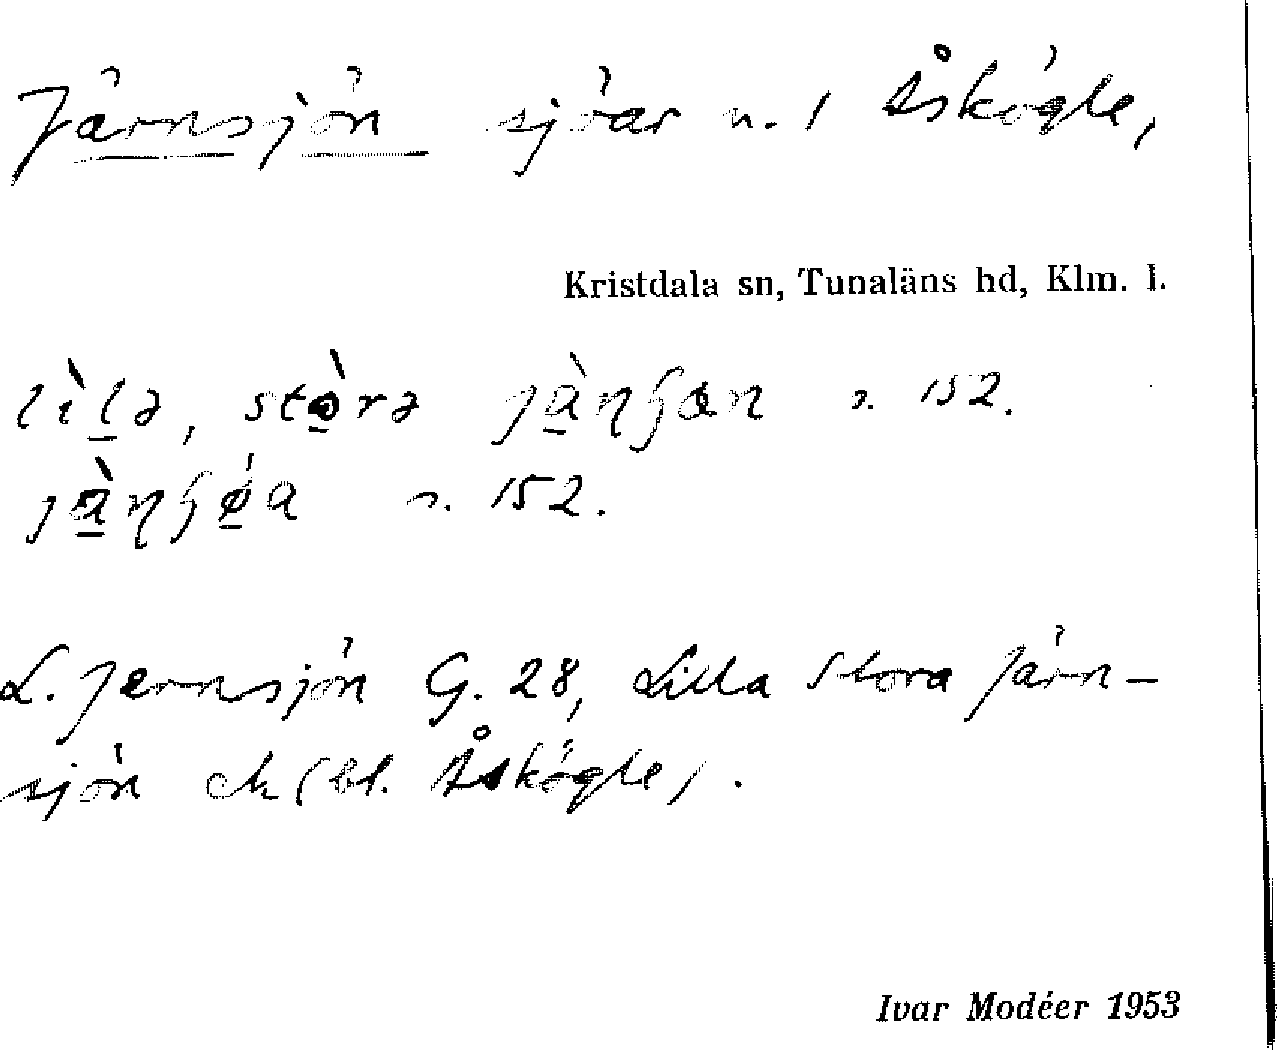 Järnsjön sjöar n. / Åskögle,
Kristdala sn, Tunaläns hd, Klm. l.
lìlə, stòrə s. 152.
s. 152.
L. Jernsjön G. 28, Lilla Stora Järn-
sjön ek (bl. Åskögle).
Ivar Modéer 1953